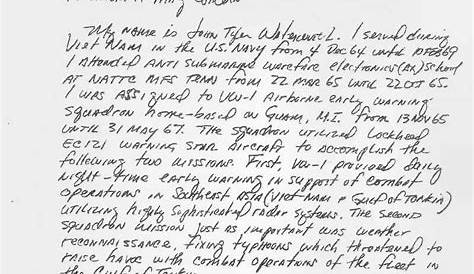 My name is John Tyler I served during
Viet Nam in the U.S. Navy from 4 Dec 64 until
I attended Anti submarine warfare electronics (AX) school
at NATTC MFS TENN from 22 MAR 65 until 22 OCT 65.
I was assigned to VW-1 Airborne early warning
squadron home-based on Guam, M.I. from 13 NOV 65
until 31 May 67. The squadron utilized Lockheed
EC121 warning star Aircraft to accomplish the
following two missions. First, VW-1 provided daily
night-time early warning in support of combat
operations in Southeast Asia (Viet-Nam & Gulf of Tonkin)
utilizing highly sophisticated radar systems. The second
squadron mission just as important was weather
reconnaissance, fixing typhoons which threatened to
raise havoc with combat operations of the fleet in
the Gulf of Tonkin